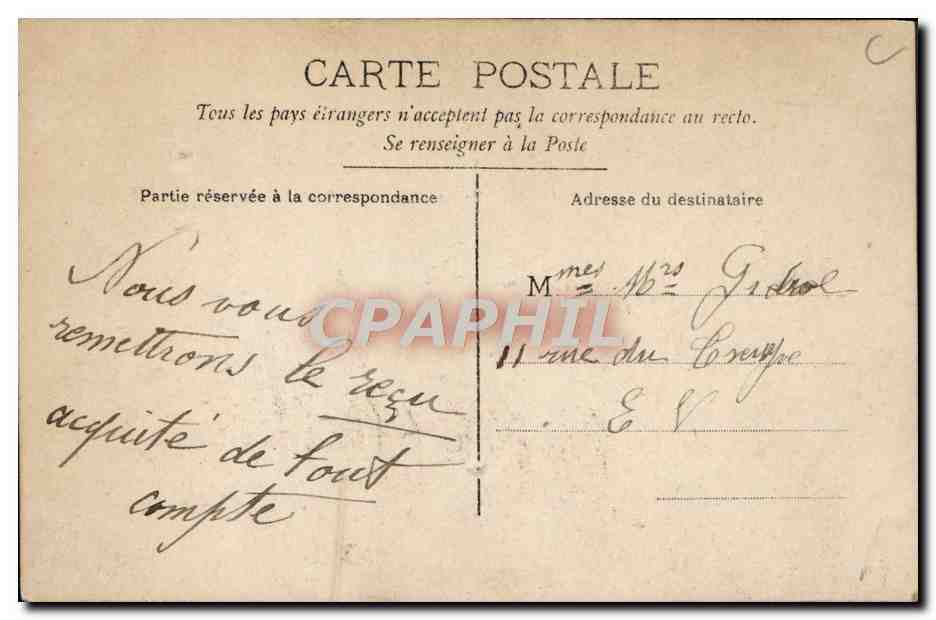 C
CARTE POSTALE
Tous les pays étrangers n'acceptent pas la correspondance au recto.
Se renseigner à la Poste
Partie réservée à la correspondance
Nous vous
remettrons le reçu
acquité de tout
compte
Adresse du destinataire
Mmes Mrs
11 rue du
E V
CPAPHIL